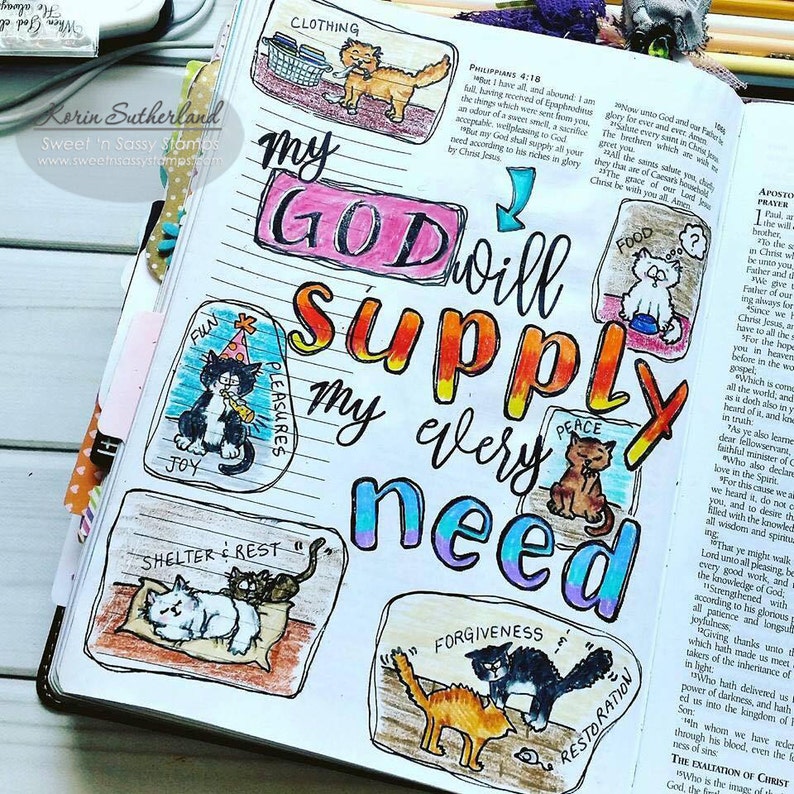 When God cl
He alway
Korin Sutherland
Sweet 'n Sassy Stamps
www.sweetnsassystamps.com
CLOTHING
my
GOD
will
supply
my every
need
FOOD
?
FUN
PLEASURES
JOY
PEACE
SHELTER & REST
FORGIVENESS
&
RESTORATION
PHILIPPIANS 4:18
18But I have all, and abound: I am
full, having received of Epaphroditus
the things which were sent from you,
an odour of a sweet smell, a sacrifice
acceptable, wellpleasing to God.
19But my God shall supply all your
need according to his riches in glory
by Christ Jesus.
1066
20Now unto God and our Father be
glory for ever and ever. Amen.
21Salute every saint in Christ Jesus.
The brethren which are with me
greet you.
22All the saints salute you, chiefly
they that are of Caesar's household.
23The grace of our Lord Jesus
Christ be with you all. Amen.
APOSTO
PRAYER
1 Paul, an
the will o
brother,
2To the sa
in Christ wh
be unto you,
Father and th
3We give
Father of our
ing always for
4Since we h
Christ Jesus, and
have to all the s
5For the hope
you in heaven
before in the wo
gospel;
6Which is come
all the world, and
as it doth also in y
heard of it, and kn
in truth:
7As ye also learne
dear fellowservant,
faithful minister of C
8Who also declare
love in the Spirit.
9For this cause we al
we heard it, do not c
you, and to desire th
filled with the knowled
all wisdom and spiritu
ing;
10That ye might walk
Lord unto all pleasing, be
every good work, and i
the knowledge of God;
11Strengthened with
according to his glorious p
all patience and longsuff
joyfulness;
12Giving thanks unto th
which hath made us meet
takers of the inheritance of
in light:
13Who hath delivered us f
power of darkness, and hath
ed us into the kingdom of h
Son:
14In whom we have reder
through his blood, even the fo
ness of sins:
THE EXALTATION OF CHRIST
15Who is the image of the i
God, the first